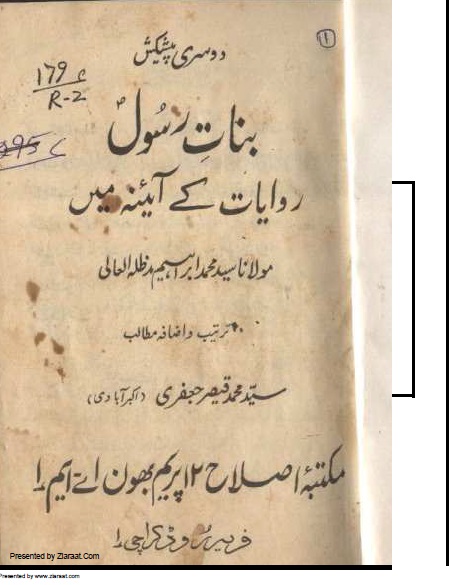 ۱
دوسری پیشکش
179 c
R-2
295 c
بناتِ رسُولؐ
روایات کے آئینہ میں
مولانا سید محمد ابراہیم مدظلہ العالی
ترتیب و اضافہ مطالب
سیّد محمد قیصر جعفری (اکبرآبادی)
مکتبۂ اصلاح ۱۲ پریم بھون اے ایم ۱
فریر روڈ کراچی ۱
Presented by Ziaraat.Com
Presented by www.ziaraat.com